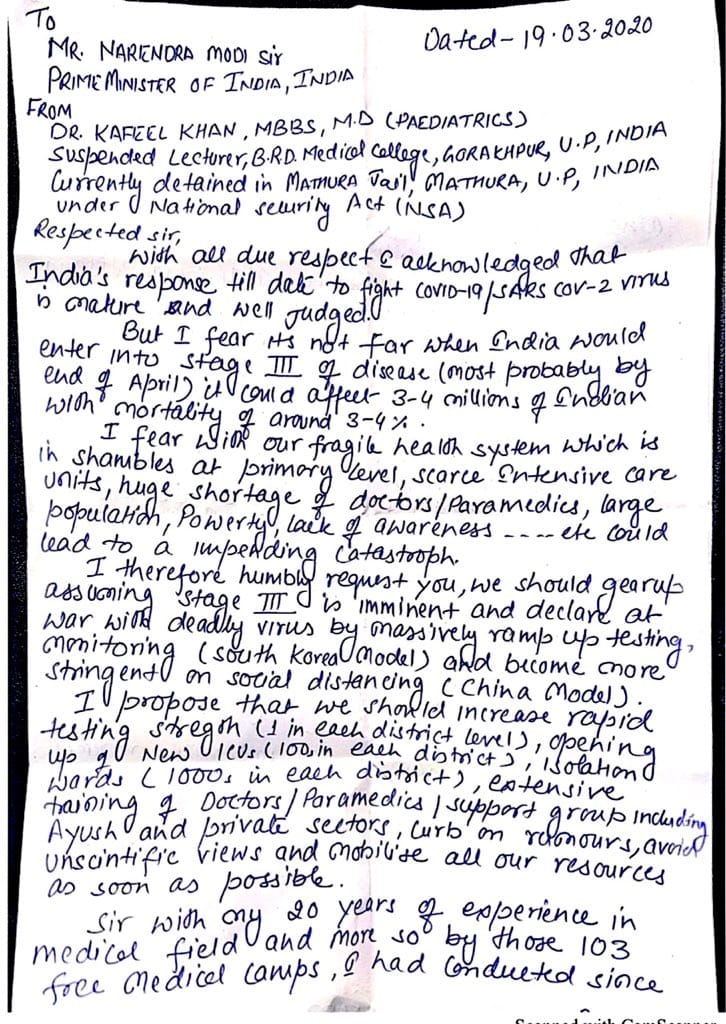 To
Dated- 19.03.2020
MR. NARENDRA MODI sir
PRIME MINISTER OF INDIA, INDIA
FROM
DR. KAFEEL KHAN, MBBS, M.D (PAEDIATRICS)
Suspended Lecturer, B.R.D. Medical College, GORAKHPUR, U.P, INDIA
Currently detained in MATHURA Jail, MATHURA, U.P, INDIA
under National security Act (NSA)
Respected sir,
with all due respect I acknowledged that
India's response till date to fight COVID-19/SARS COV-2 virus
is mature and well judged.
But I fear its not far when India would
enter into stage III of disease (most probably by
end of April) it could affect 3-4 millions of Indian
with mortality of around 3-4%.
I fear with our fragile health system which is
in shambles at primary level, scarce Intensive care
units, huge shortage of doctors/Paramedics, large
population, Powerty, lack of awareness ---- etc could
lead to a impending catastroph.
I therefore humbly request you, we should gearup
assuming stage III is imminent and declare at
war with deadly virus by massively ramp up testing,
monitoring (south Korea Model) and become more
stringent on social distancing (China Model).
I propose that we should increase rapid
testing stregth (1 in each district level), opening
up of New ICUs (100 in each district), Isolation
wards (1000s in each district), extensive
training of Doctors/Paramedics/support group including
Ayush and private sectors, curb on rumours, avoid
unscintific views and mobilise all our resources
as soon as possible.
Sir with my 20 years of experience in
medical field and more so by those 103
free Medical camps, I had conducted since